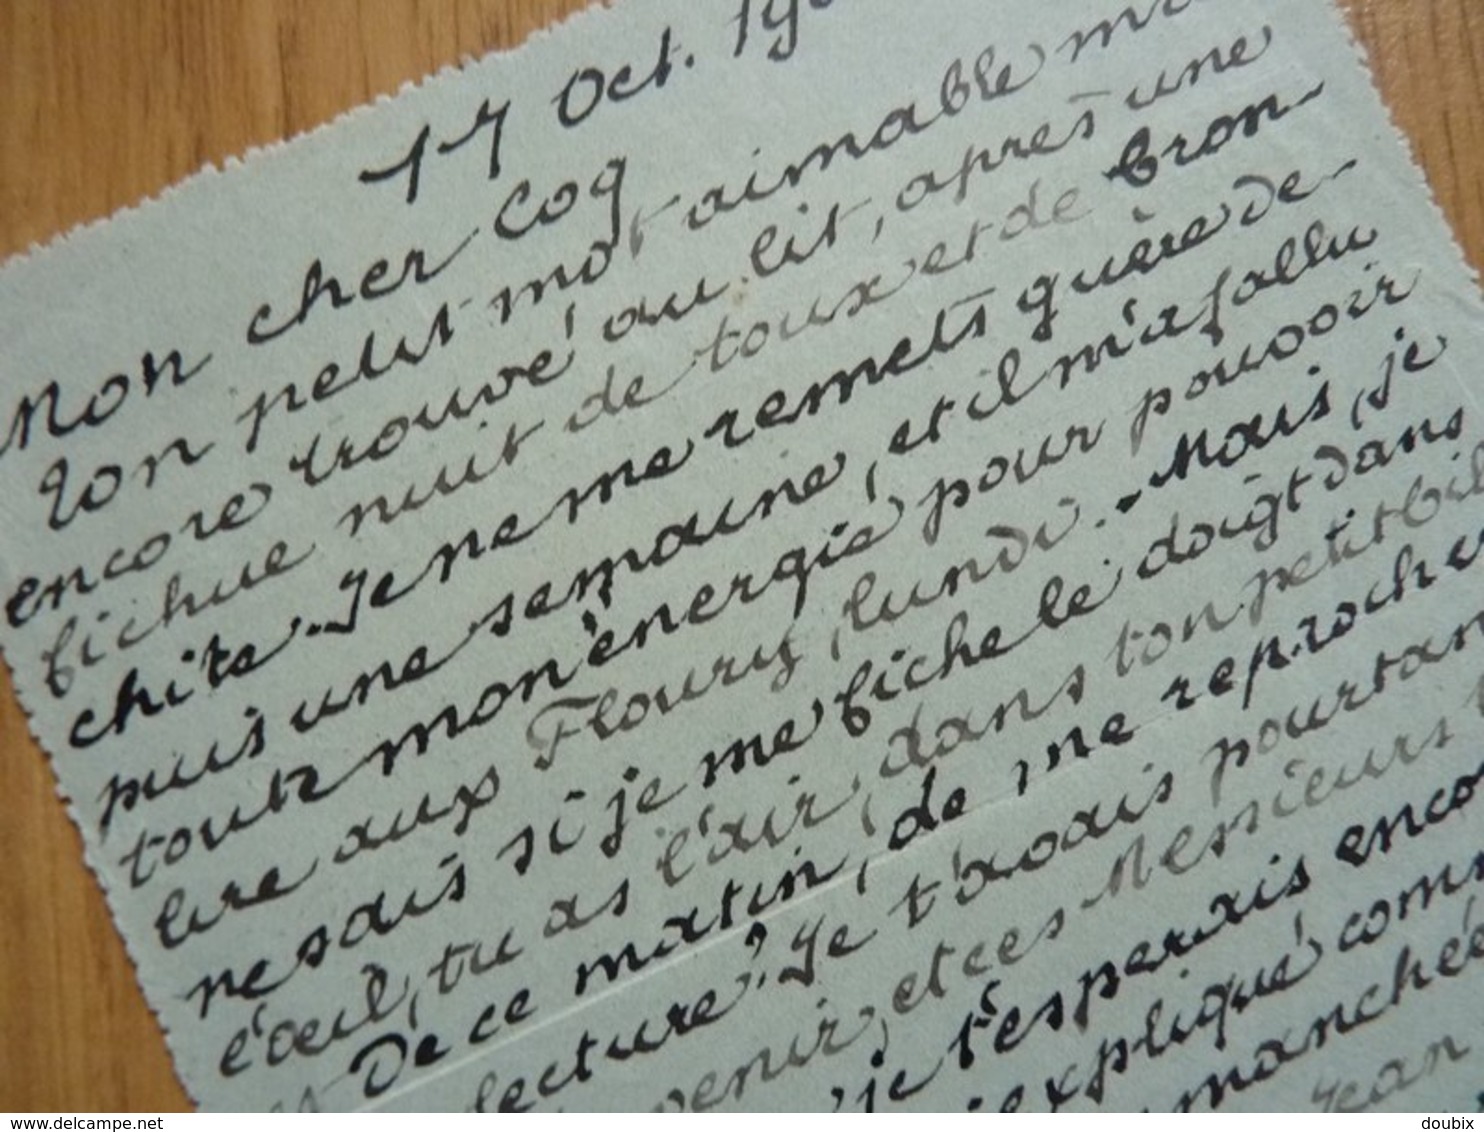 17 Oct. 19
Mon cher Coq
Ton petit mot aimable m'a
encore trouvé au lit, après une
fichue nuit de toux et de bron-
chite. Je ne me remets guère de-
puis une semaine, et il m'a fallu
toute mon énergie pour pouvoir
lire aux Floury, lundi. - Mais, je
ne sais si je me fiche le doigt dans
l'œil, tu as l'air, dans ton petit bil
De ce matin, de me reproche
lecture? Je t'avais pourtan
venir, et ces Messieurs
je t'esperais enco
expliqué com
manchée
Jean
doubix